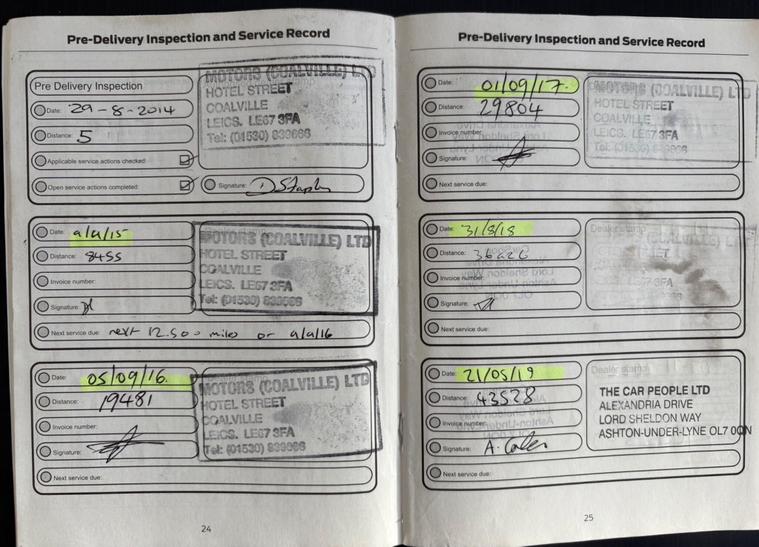 Pre-Delivery Inspection and Service Record
Pre Delivery Inspection
Date: 29-8-2014
Distance: 5
Applicable service actions checked:
Open service actions completed:
Signature:
MOTORS (COALVILLE) LTD
HOTEL STREET
COALVILLE
LEICS. LE67 3FA
Tel: (01530)
Date: 9/9/15
Distance: 8455
Invoice number:
Signature:
Next service due: next 12.500 miles or 9/9/16
MOTORS (COALVILLE) LTD
HOTEL STREET
COALVILLE
LEICS. LE67 3FA
Tel: (01530)
Date: 05/09/16.
Distance: 19481
Invoice number:
Signature:
Next service due:
MOTORS (COALVILLE) LTD
HOTEL STREET
COALVILLE
LEICS. LE67 3FA
Tel: (01530)
24
Pre-Delivery Inspection and Service Record
Date: 01/09/17.
Distance: 29804
Invoice number:
Signature:
Next service due:
MOTORS (COALVILLE) LTD
HOTEL STREET
COALVILLE
LEICS. LE67 3FA
Tel:
Date: 31/8/18
Distance: 36226
Invoice number:
Signature:
Next service due:
Dealer stamp
Date: 21/05/19
Distance: 43528
Invoice number:
Signature:
Next service due:
Dealer stamp
THE CAR PEOPLE LTD
ALEXANDRIA DRIVE
LORD SHELDON WAY
ASHTON-UNDER-LYNE OL7 0QN
25